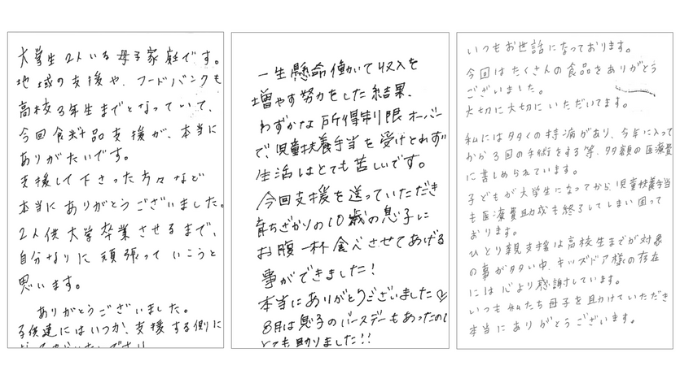 大学生2人いる母子家庭です。
地域の支援や、フードバンクも
高校3年生までとなっていて、
今回食料品支援が、本当に
ありがたいです。
支援して下さった方々など
本当にありがとうございました。
2人供大学卒業させるまで、
自分なりに頑張っていこうと
思います。
ありがとうございました。
子供達にはいつか、支援する側に
一生懸命働いて収入を
増やす努力をした結果、
わずかな所得制限オーバー
で、児童扶養手当を受けとれず
生活はとても苦しいです。
今回支援を送っていただき
育ちざかりの10歳の息子に
お腹一杯食べさせてあげる
事ができました!
本当にありがとうございました
8月は息子のバースデーもあったので
とても助りました!!
いつもお世話になっております。
今回はたくさんの食品をありがとう
ございました。
大切に大切にいただいてます。
私にはタタイの持病があり、今年に入って
から3回の手術をする等、多額の医療費
に苦しめられています。
子どもが大学生になってから、児童扶養手当
も医療費助成も終了してしまい困って
おります。
ひとり親支援は高校生までが対象
の事が多い中、キッズドア様の存在
には心より感謝しています。
いつも私たち母子を助けていただき
本当にありがとうございます。